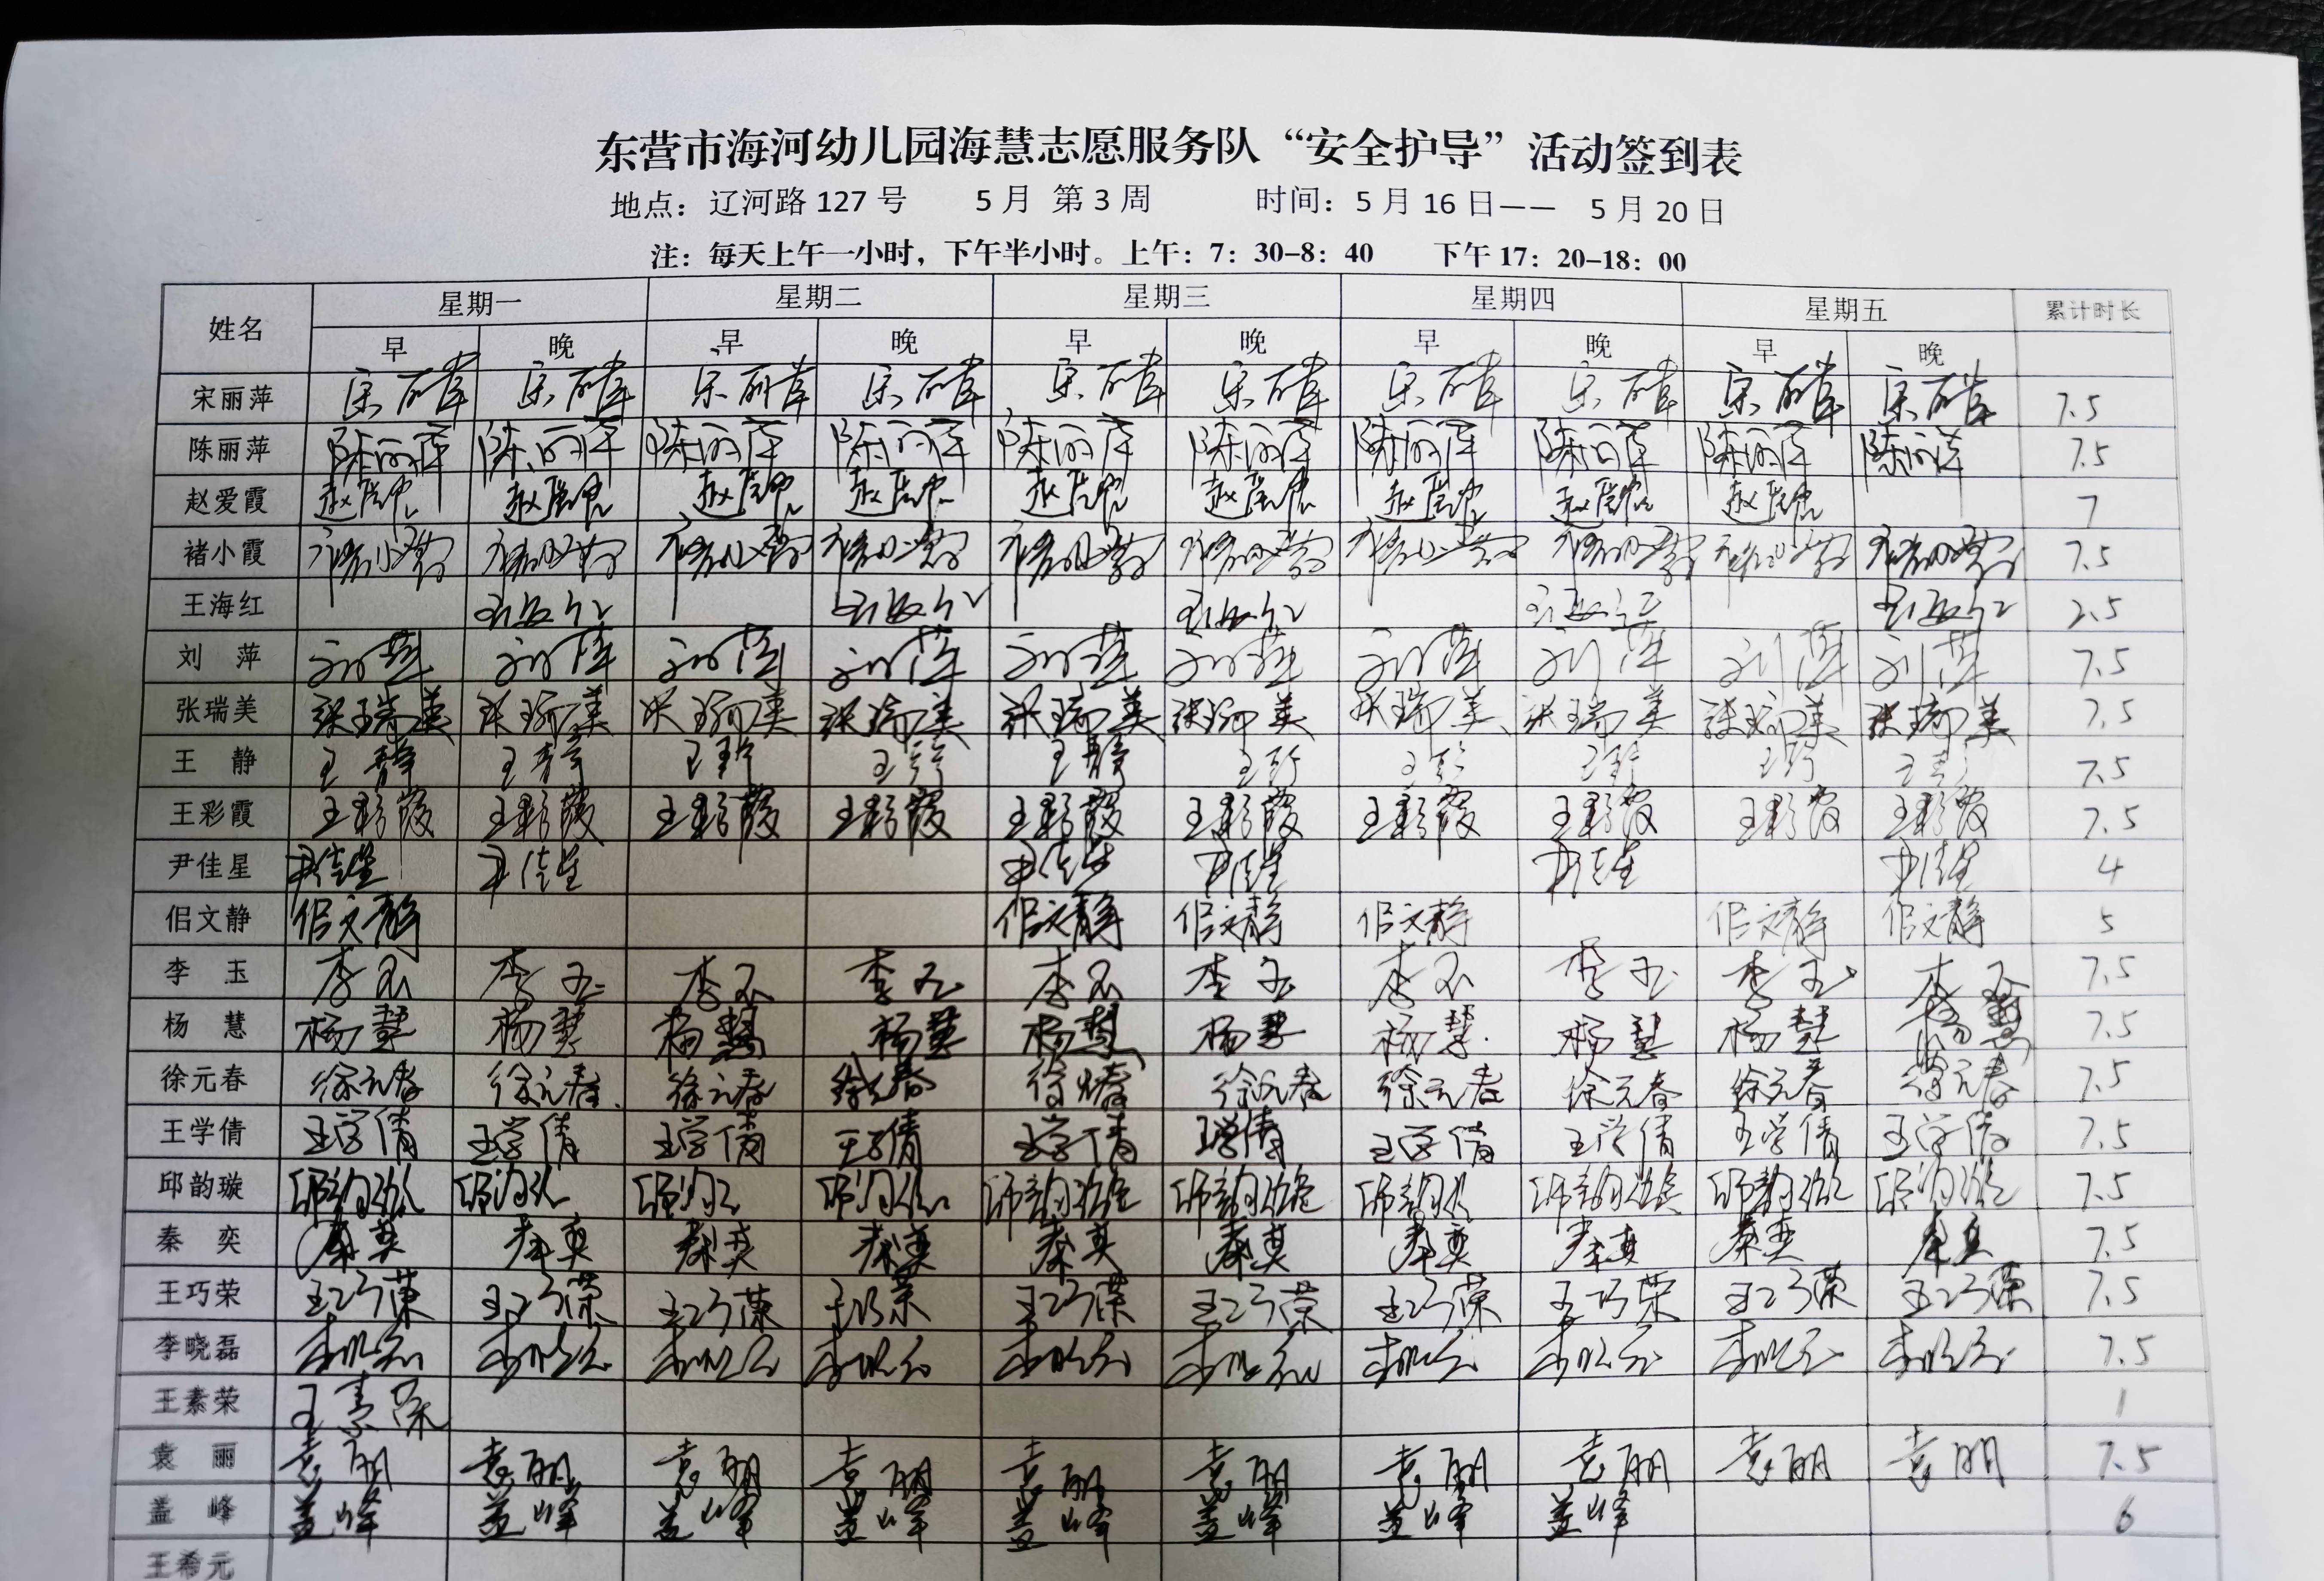 东营市海河幼儿园海慧志愿服务队“安全护导”活动签到表
地点：辽河路 127 号 5 月 第 3 周 时间：5 月 16 日—— 5 月 20 日
注：每天上午一小时，下午半小时。上午：7：30-8：40 下午 17：20-18：00
姓名 星期一 星期二 星期三 星期四 星期五 累计时长
早 晚 早 晚 早 晚 早 晚 早 晚
宋丽萍 宋丽萍 宋丽萍 宋丽萍 宋丽萍 宋丽萍 宋丽萍 宋丽萍 宋丽萍 宋丽萍 宋丽萍 7.5
陈丽萍 陈丽萍 陈丽萍 陈丽萍 陈丽萍 陈丽萍 陈丽萍 陈丽萍 陈丽萍 陈丽萍 陈丽萍 7.5
赵爱霞 赵爱霞 赵爱霞 赵爱霞 赵爱霞 赵爱霞 赵爱霞 赵爱霞 赵爱霞 赵爱霞 7
褚小霞 褚小霞 褚小霞 褚小霞 褚小霞 褚小霞 褚小霞 褚小霞 褚小霞 褚小霞 褚小霞 7.5
王海红 王海红 王海红 王海红 王海红 王海红 2.5
刘 萍 刘萍 刘萍 刘萍 刘萍 刘萍 刘萍 刘萍 刘萍 刘萍 刘萍 7.5
张瑞美 张瑞美 张瑞美 张瑞美 张瑞美 张瑞美 张瑞美 张瑞美 张瑞美 张瑞美 张瑞美 7.5
王 静 王静 王静 王静 王静 王静 王静 王静 王静 王静 王静 7.5
王彩霞 王彩霞 王彩霞 王彩霞 王彩霞 王彩霞 王彩霞 王彩霞 王彩霞 王彩霞 王彩霞 7.5
尹佳星 尹佳星 尹佳星 尹佳星 尹佳星 尹佳星 尹佳星 4
佀文静 佀文静 佀文静 佀文静 佀文静 佀文静 佀文静 5
李 玉 李玉 李玉 李玉 李玉 李玉 李玉 李玉 李玉 李玉 李玉 7.5
杨 慧 杨慧 杨慧 杨慧 杨慧 杨慧 杨慧 杨慧 杨慧 杨慧 杨慧 7.5
徐元春 徐元春 徐元春 徐元春 徐元春 徐元春 徐元春 徐元春 徐元春 徐元春 徐元春 7.5
王学倩 王学倩 王学倩 王学倩 王学倩 王学倩 王学倩 王学倩 王学倩 王学倩 王学倩 7.5
邱韵璇 邱韵璇 邱韵璇 邱韵璇 邱韵璇 邱韵璇 邱韵璇 邱韵璇 邱韵璇 邱韵璇 邱韵璇 7.5
秦 奕 秦奕 秦奕 秦奕 秦奕 秦奕 秦奕 秦奕 秦奕 秦奕 秦奕 7.5
王巧荣 王巧荣 王巧荣 王巧荣 王巧荣 王巧荣 王巧荣 王巧荣 王巧荣 王巧荣 王巧荣 7.5
李晓磊 李晓磊 李晓磊 李晓磊 李晓磊 李晓磊 李晓磊 李晓磊 李晓磊 李晓磊 李晓磊 7.5
王素荣 王素荣 1
袁 丽 袁丽 袁丽 袁丽 袁丽 袁丽 袁丽 袁丽 袁丽 袁丽 袁丽 7.5
盖 峰 盖峰 盖峰 盖峰 盖峰 盖峰 盖峰 盖峰 盖峰 6
王希元